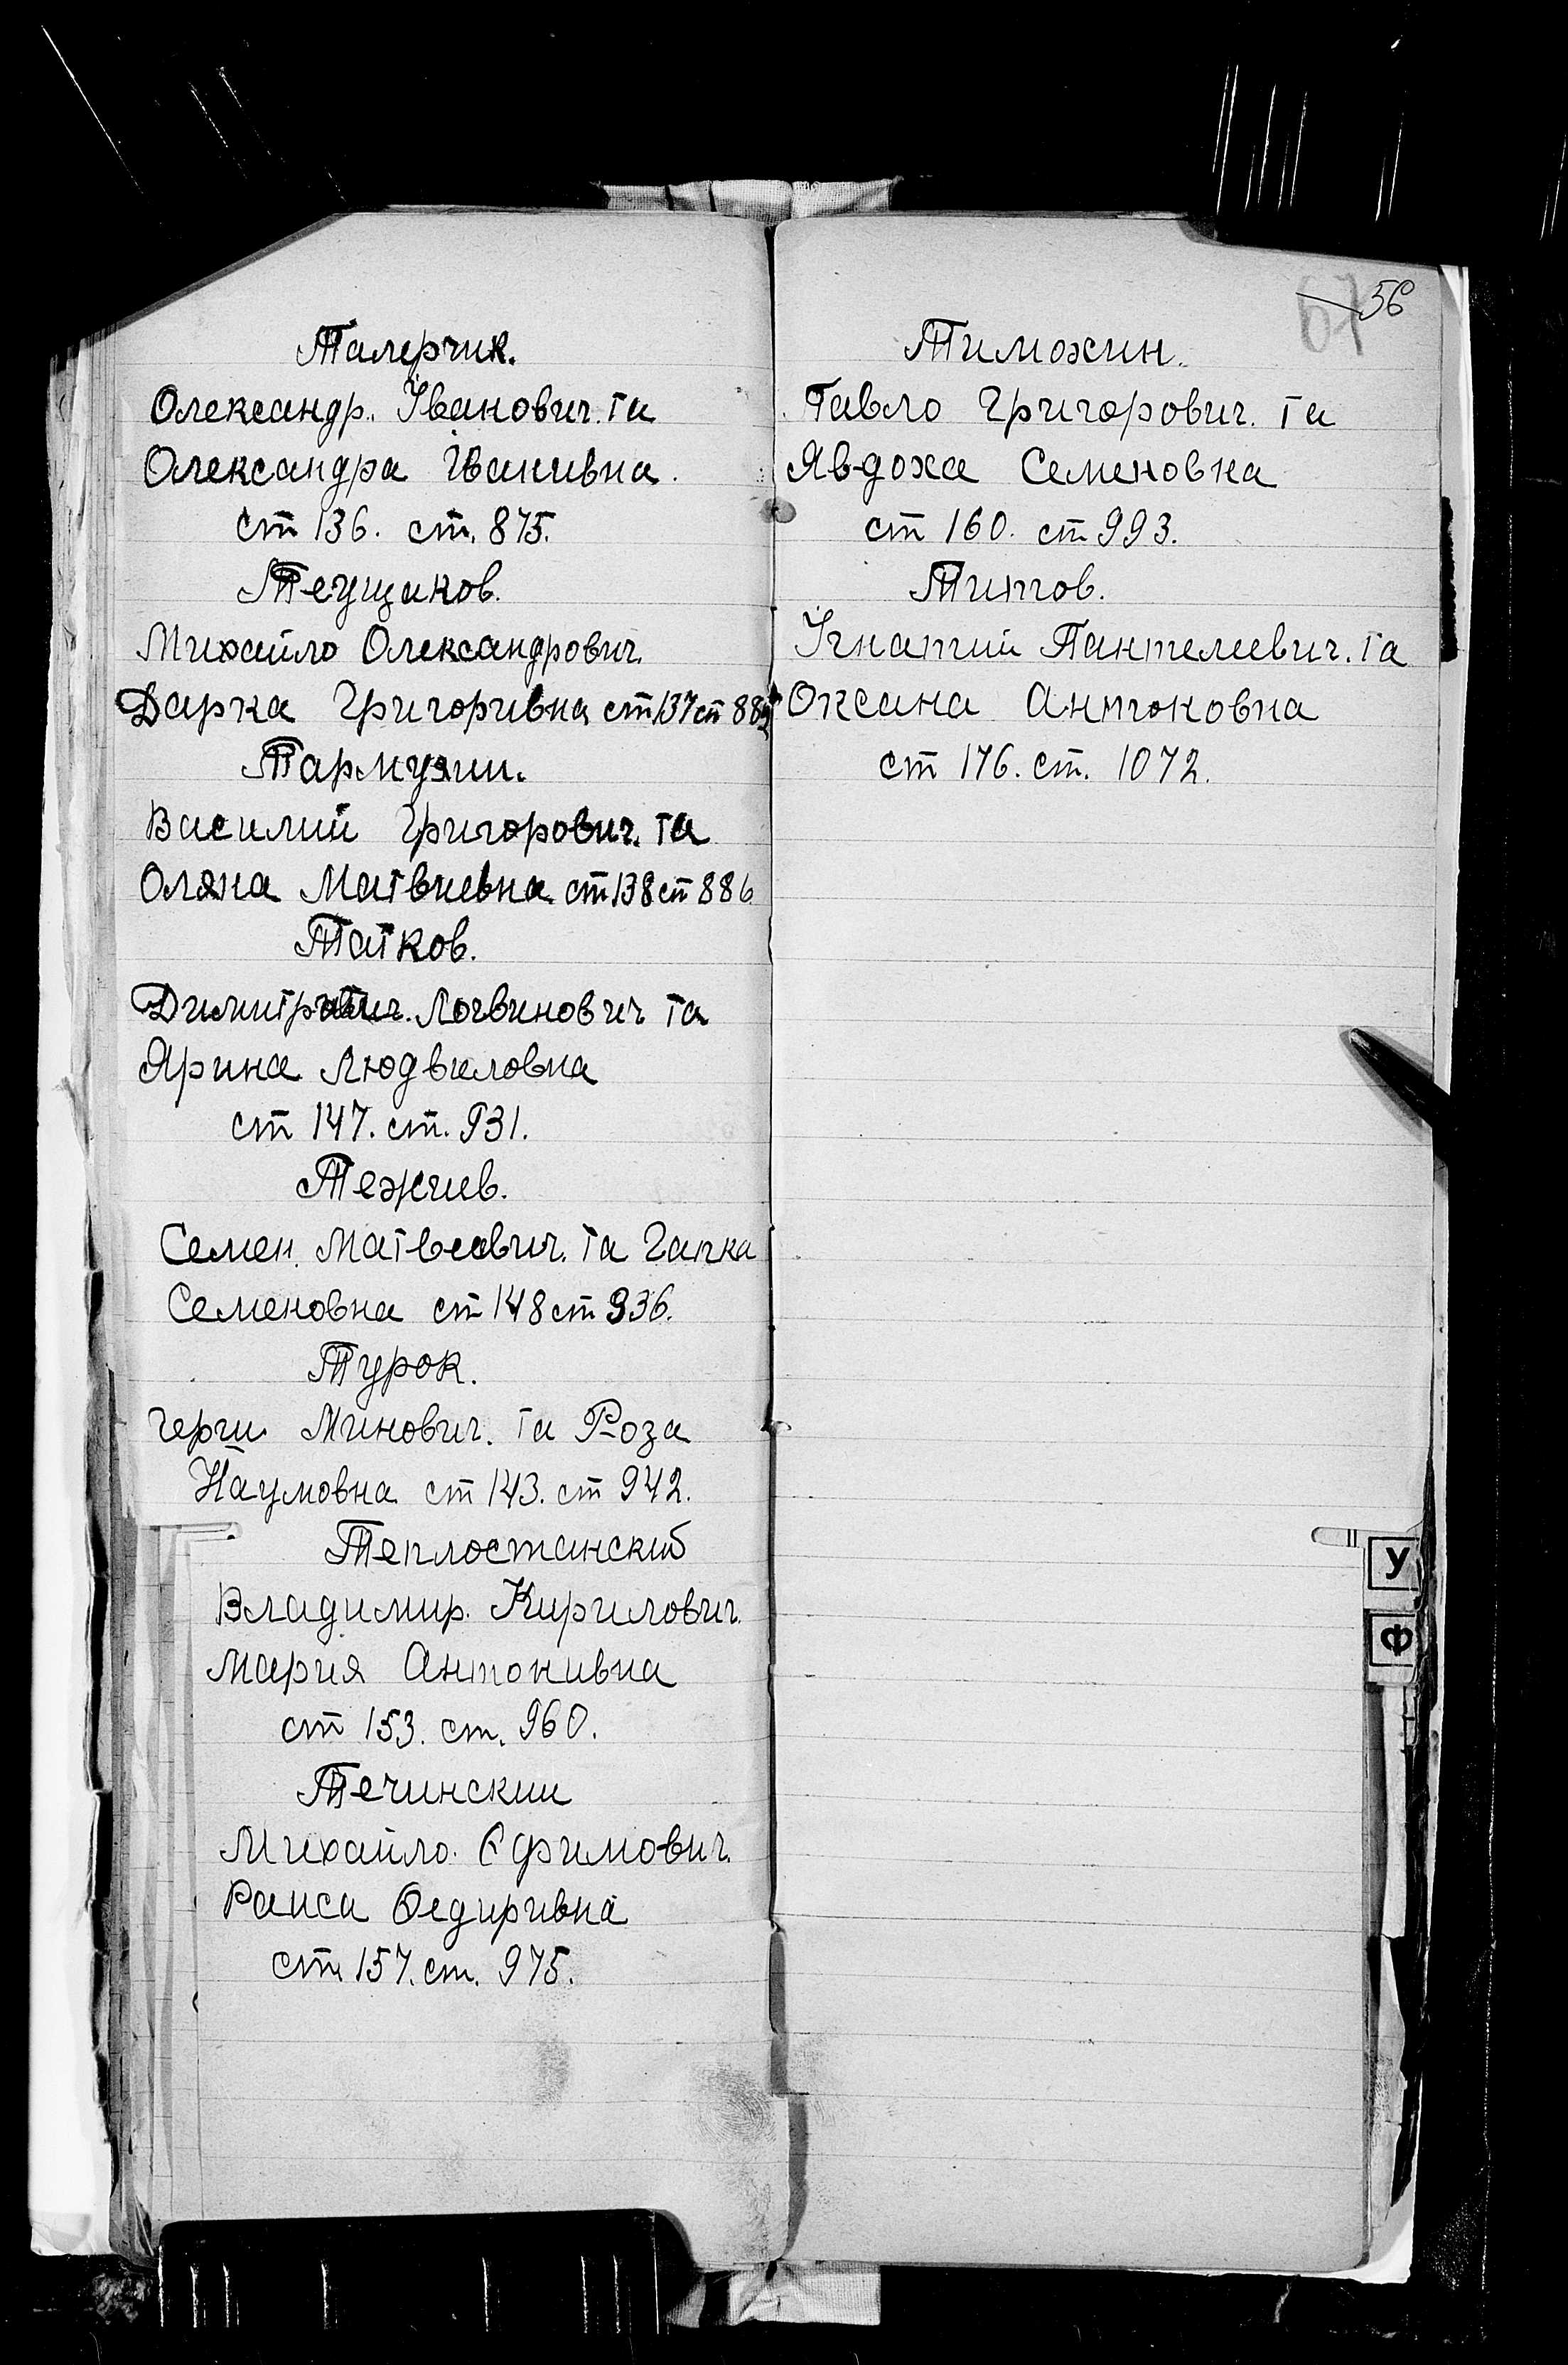 Талерчик.
Олександр. Іванович. та
Олександра Іванивна.
ст 136. ст. 875.
Теущаков.
Михайло Олександрович.
Дарка Григоривна ст 137 ст
Василий Григорович. та
Оляна Матвиевна ст 138 ст 886
Татков.
Логвинович та
Ярина Людвиловна
ст 147. ст. 931.
Тежиев.
Семен. Матвеевич. та Гапка
Семеновна ст 148 ст 936.
Турок.
Герги Минович. та Роза
Наумовна ст 143. ст 942.
Теплостанский
Владимир. Кирилович.
Мария Антонивна
ст 153. ст. 960.
Течинский
Михайло. Єфимович.
Раиса Федиривна
ст. 157. ст. 975.
56
67
Тимохин.
Павло Григорович. та
Явдоха Семеновна
ст 160. ст 993.
Титов.
Ігнатий Пантелеевич. та
Оксана Антоновна
ст 176. ст. 1072.
У
Ф